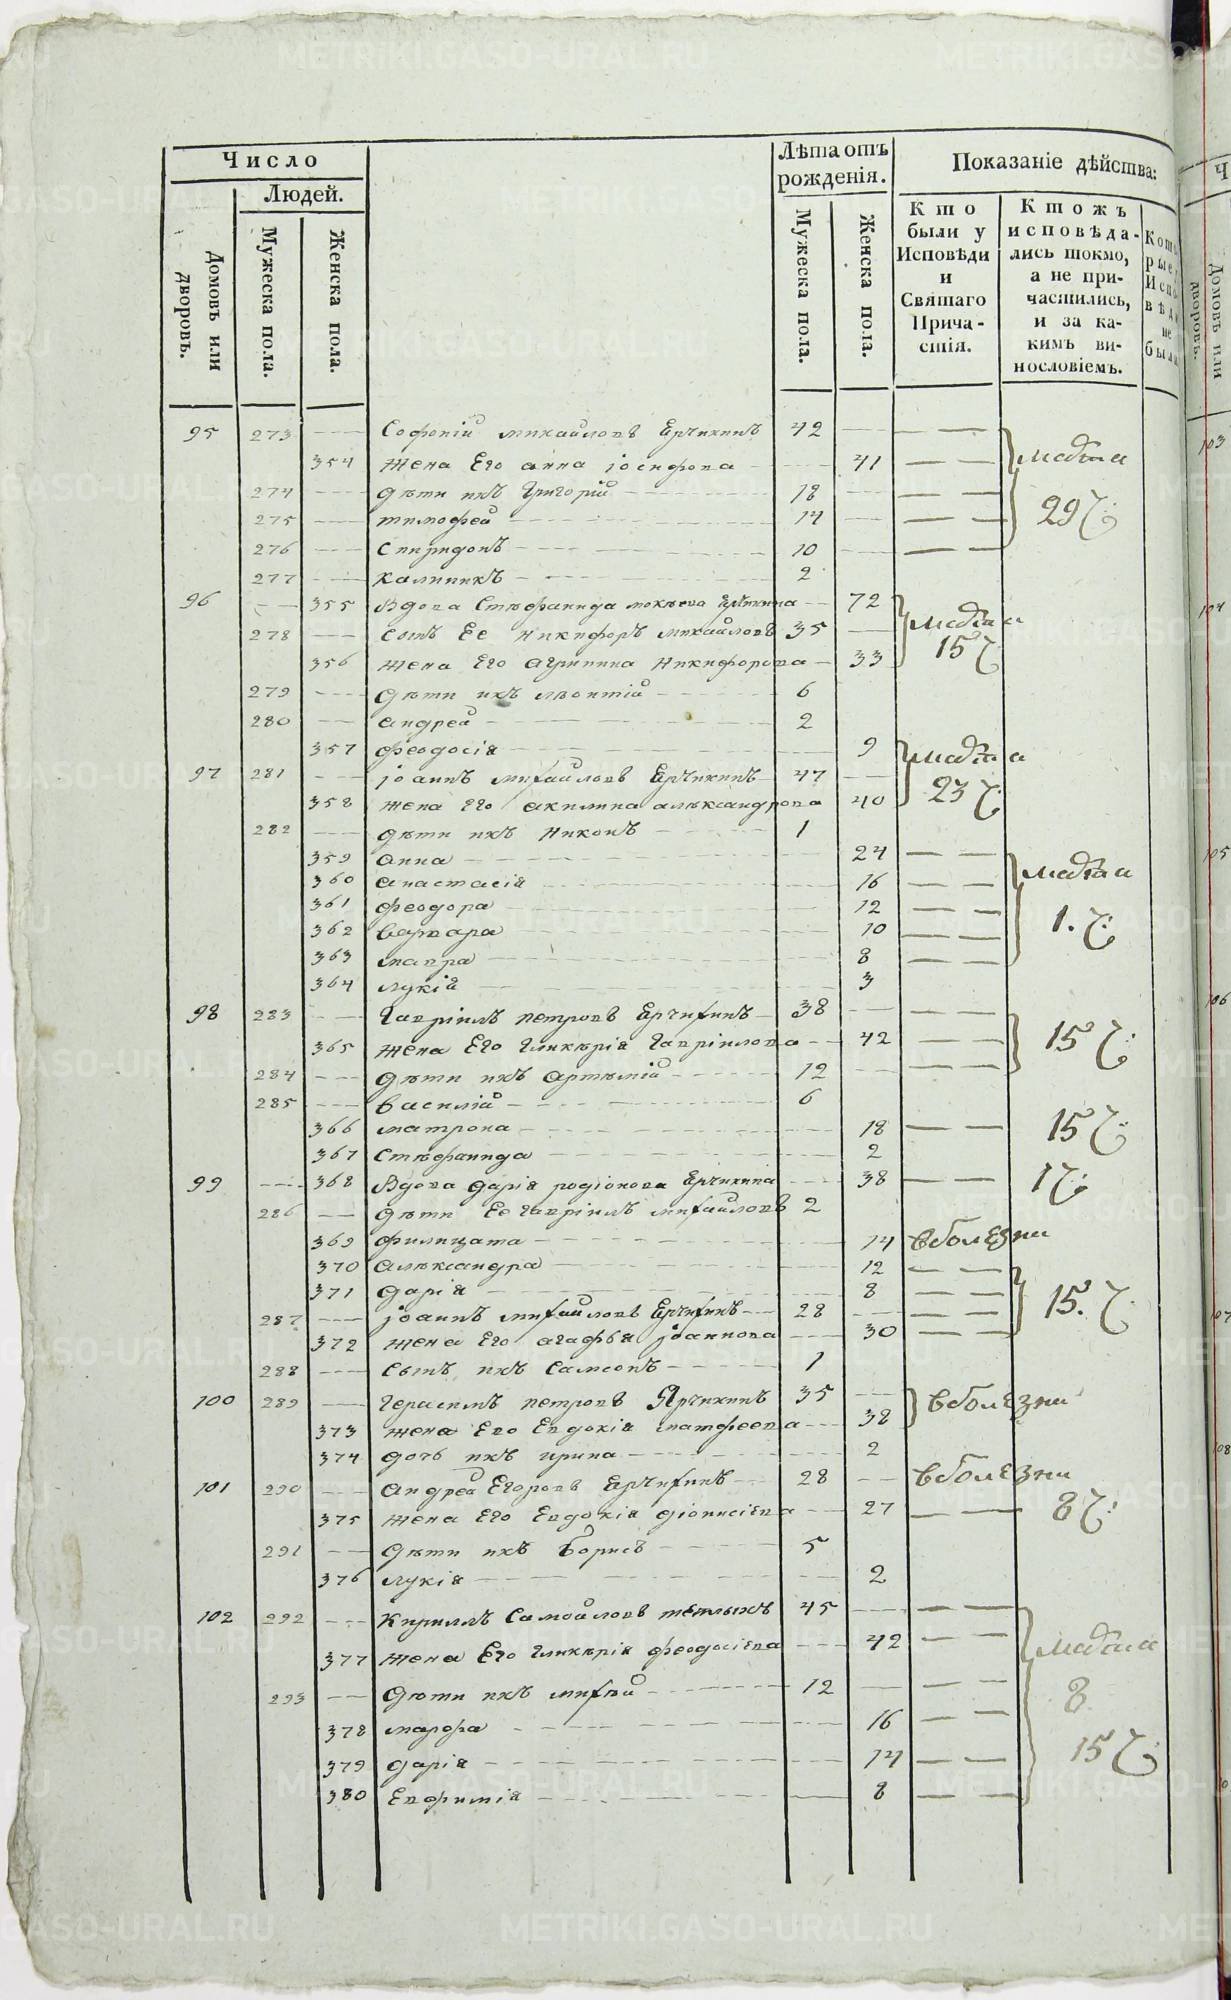 Число
Людей.
Домовъ или дворовъ.
Мужеска пола.
Женска пола.
Лѣта отъ рожденія.
Мужеска пола.
Женска пола.
Показаніе дѣйства:
Кто были у Исповѣди и Святаго Причастія.
Ктожъ исповѣдались токмо, а не причастились, и за какимъ винословіемъ.
95 273 Софроній михайловъ Ерчикинъ 42
354 жена Его анна іосифова 41 маѳта
274 дѣти ихъ Григорій 18
275 тимофей 14 29 ч:
276 Спиридонъ 10
277 калиникъ 2
96 355 Вдова Стефанида мокѣева 72
278 сынъ Ее Никифоръ михайловъ 35
356 жена Его агрипина Никифорова 33 15 ч
279 дѣти ихъ леонтій 6
280 андрей 2
357 феодосія 9
97 281 іоаннъ михайловъ Ерчикинъ 47
358 жена Его акилина александрова 40 23 ч
282 дѣти ихъ Никонъ 1
359 анна 24
360 анастасія 16
361 феодора 12
362 варвара 10 1. ч:
363 мавра 8
364 лукія 3
98 283 Гавріилъ петровъ Ерчихинъ 38
365 жена Его Гликерія Гавріилова 42 15 ч:
284 дѣти ихъ артемій 12
285 василій 6
366 матрона 18 15 ч:
367 Стефанида 2
99 368 Вдова дарія родіонова Ерчикина 38 1 ч:
286 дѣти Ее Гавріилъ михайловъ 2
369 филицата 14 вболезни
370 александра 12
371 дарія 8
287 іоаннъ михайловъ Ерчихинъ 28 15. ч
372 жена Его агафья іоаннова 30
288 сынъ ихъ Самсонъ 1
100 289 Герасимъ петровъ Ярчикинъ 35
373 жена Ево Евдокія матфеева 38 вболезни
374 дочь ихъ ирина 2
101 290 андрей Егоровъ Ерчихинъ 28 вболезни
375 жена Его Евдокія діонисіева 27 8 ч:
291 дѣти ихъ Борисъ 5
376 лукія 2
102 292 Кирилъ Самойловъ тёплыхъ 45
377 жена Его Гликерія феодосіева 42
293 дѣти ихъ михѣй 12 8
378 марфа 16
379 дарія 14 15 ч:
380 Евфимія 8
METRIKI.GASO-URAL.RU